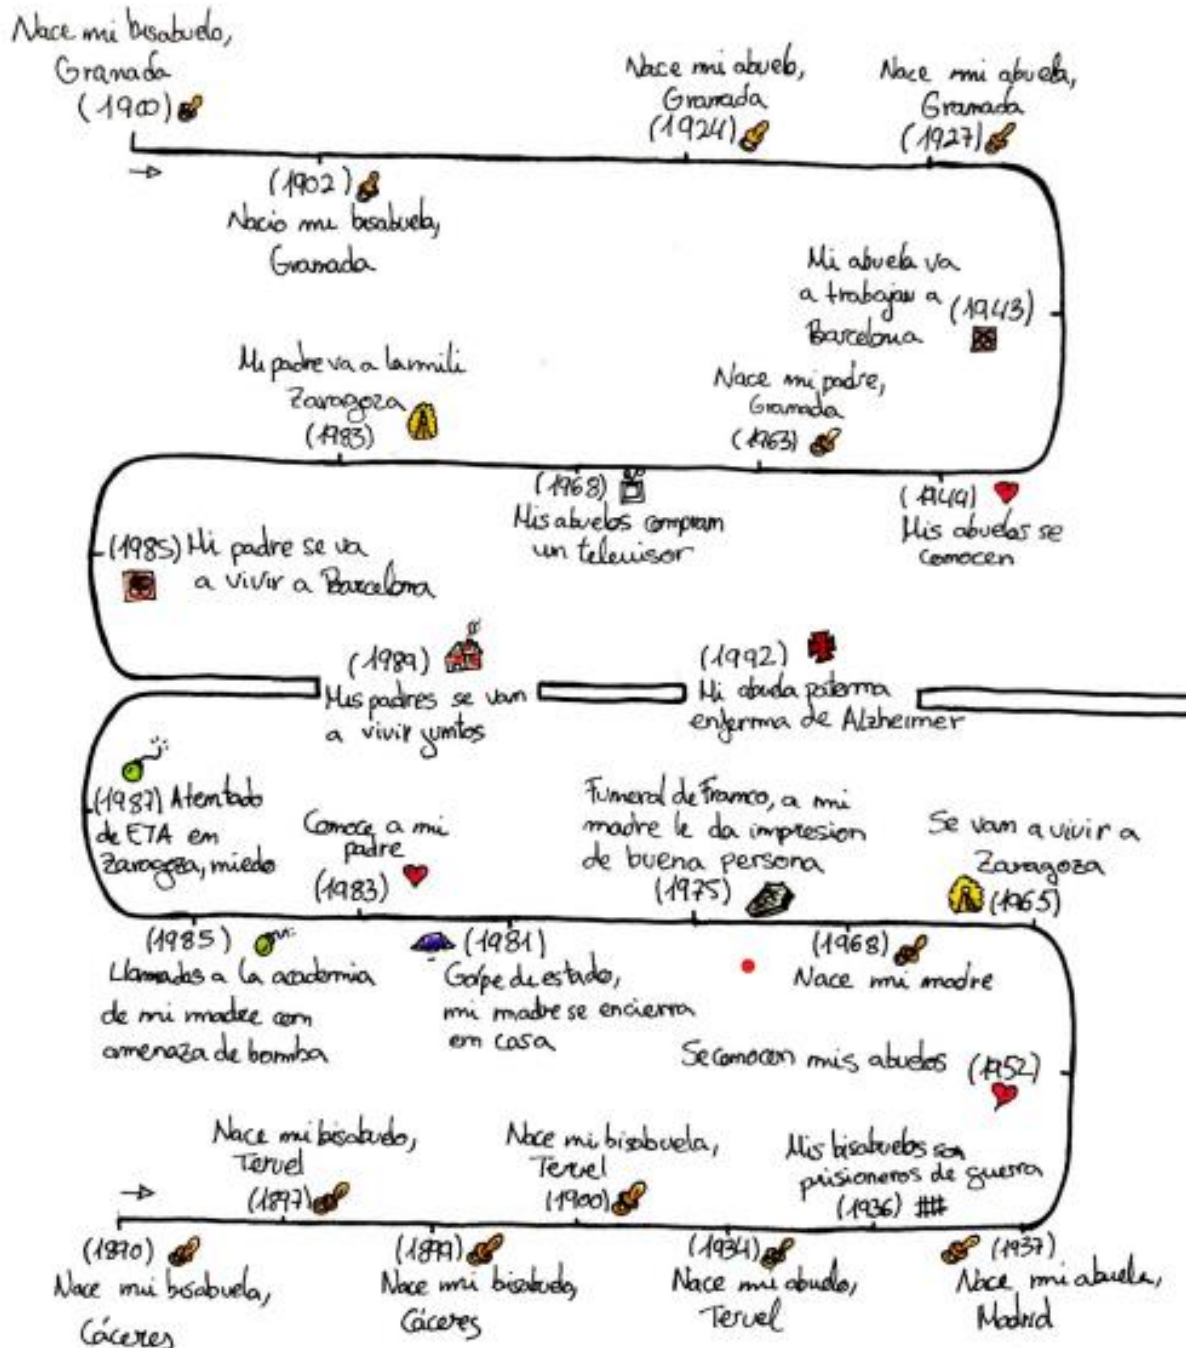 Nace mi bisabuelo,
Granada
(1900)
Nace mi abuelo,
Granada
(1924)
Nace mi abuela,
Granada
(1927)
(1902)
Nacio mi bisabuela,
Granada
Mi abuela va
a trabajar a
Barcelona
(1943)
Mi padre va a la mili
Zaragoza
(1983)
Nace mi padre,
Granada
(1963)
(1968)
Mis abuelos compran
un televisor
(1949)
Mis abuelos se
conocen
(1985) Mi padre se va
a vivir a Barcelona
(1989)
Mis padres se van
a vivir juntos
(1992)
Mi abuela paterna
enferma de Alzheimer
(1987) Atentado
de ETA en
Zaragoza, miedo
Conoce a mi
padre
(1983)
Funeral de Franco, a mi
madre le da impresion
de buena persona
(1975)
Se van a vivir a
Zaragoza
(1965)
(1985)
Llamadas a la academia
de mi madre con
amenaza de bomba
(1981)
Golpe de estado,
mi madre se encierra
en casa
(1968)
Nace mi madre
Se conocen mis abuelos
(1952)
Nace mi bisabuelo,
Teruel
(1897)
Nace mi bisabuela,
Teruel
(1900)
Mis bisabuelos son
prisioneros de guerra
(1936)
(1890)
Nace mi bisabuela,
Cáceres
(1899)
Nace mi bisabuelo,
Cáceres
(1934)
Nace mi abuelo,
Teruel
(1937)
Nace mi abuela,
Madrid